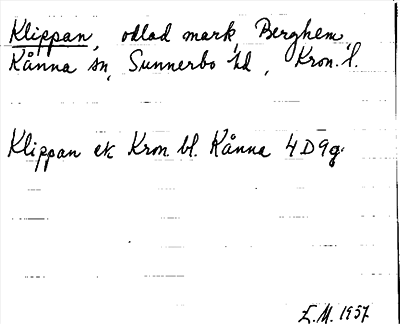 Klippan, odlad mark, Berghem,
Kånna sn, Sunnerbo hd, Kron. l.
Klippan ek Kron. bl. Kånna 4D9g.
E.M. 1957